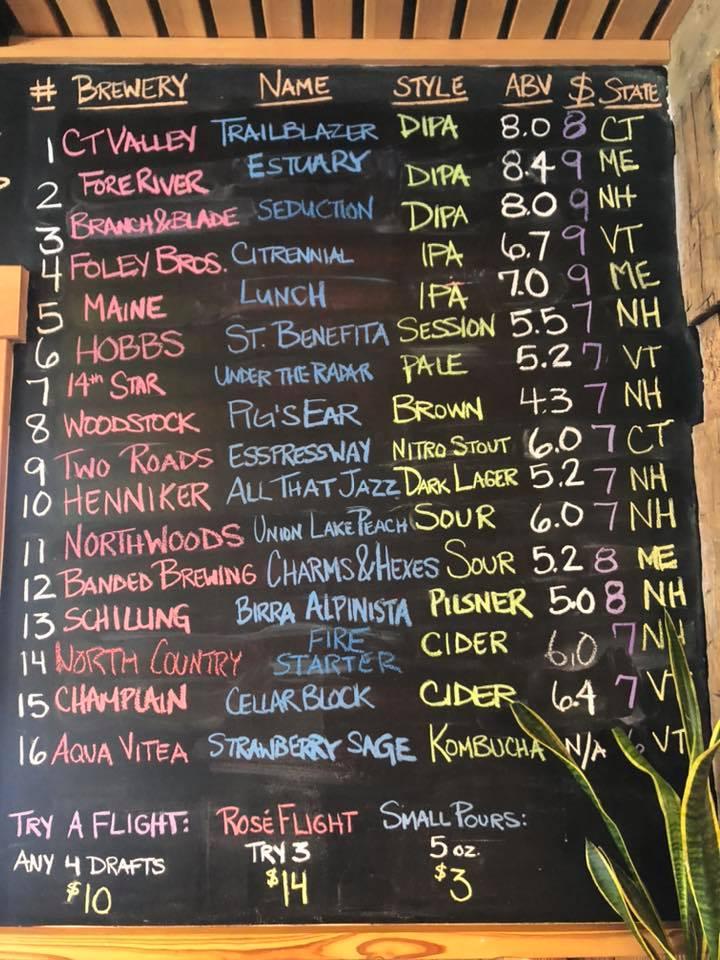 # BREWERY NAME STYLE ABV $ STATE
1 CT VALLEY TRAILBLAZER DIPA 8.0 8 CT
2 FORE RIVER ESTUARY DIPA 8.4 9 ME
3 BRANCH&BLADE SEDUCTION DIPA 8.0 9 NH
4 FOLEY BROS. CITRENNIAL IPA 6.7 9 VT
5 MAINE LUNCH IPA 7.0 9 ME
6 HOBBS ST. BENEFITA SESSION 5.5 7 NH
7 14th STAR UNDER THE RADAR PALE 5.2 7 VT
8 WOODSTOCK PIG'S EAR BROWN 4.3 7 NH
9 TWO ROADS ESSPRESSWAY NITRO STOUT 6.0 7 CT
10 HENNIKER ALL THAT JAZZ DARK LAGER 5.2 7 NH
11 NORTHWOODS UNION LAKE PEACH SOUR 6.0 7 NH
12 BANDED BREWING CHARMS&HEXES SOUR 5.2 8 ME
13 SCHILLING BIRRA ALPINISTA PILSNER 5.0 8 NH
14 NORTH COUNTRY FIRE STARTER CIDER 6.0 7 NH
15 CHAMPLAIN CELLAR BLOCK CIDER 6.4 7 V
16 AQUA VITEA STRAWBERRY SAGE KOMBUCHA N/A VT
TRY A FLIGHT: ROSÉ FLIGHT SMALL POURS:
ANY 4 DRAFTS TRY 3 5 oz.
$10 $14 $3